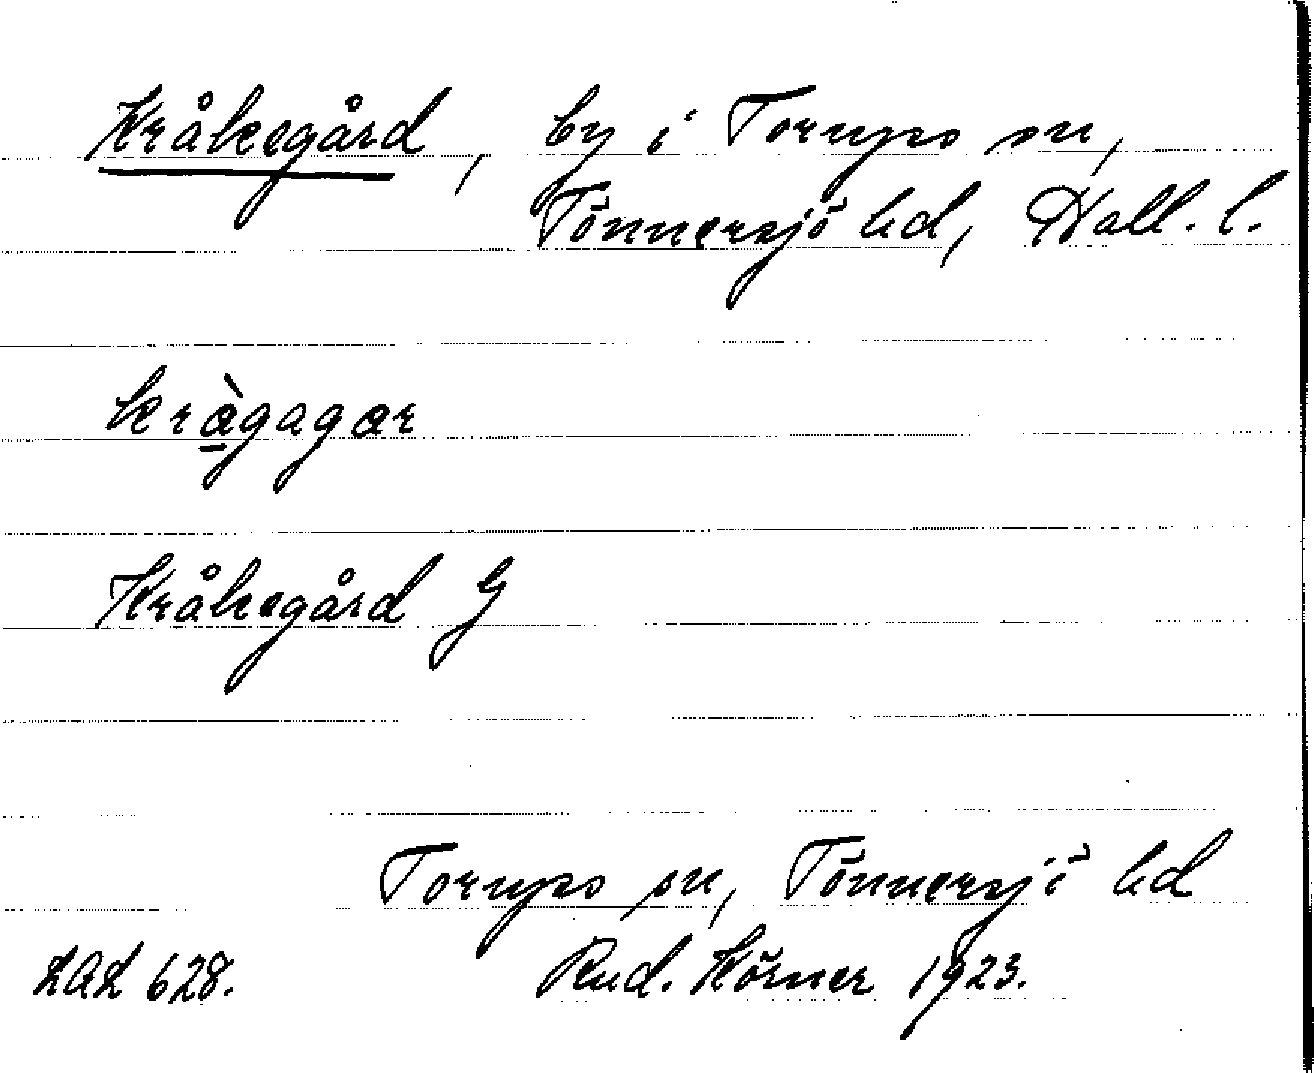 Kråkegård, by i Torups sn,
Tönnersjö hd, Hall. l.
kràgagar
Kråkegård G
Torups sn, Tönnersjö hd
LAL 628. Rud. Körner 1923.